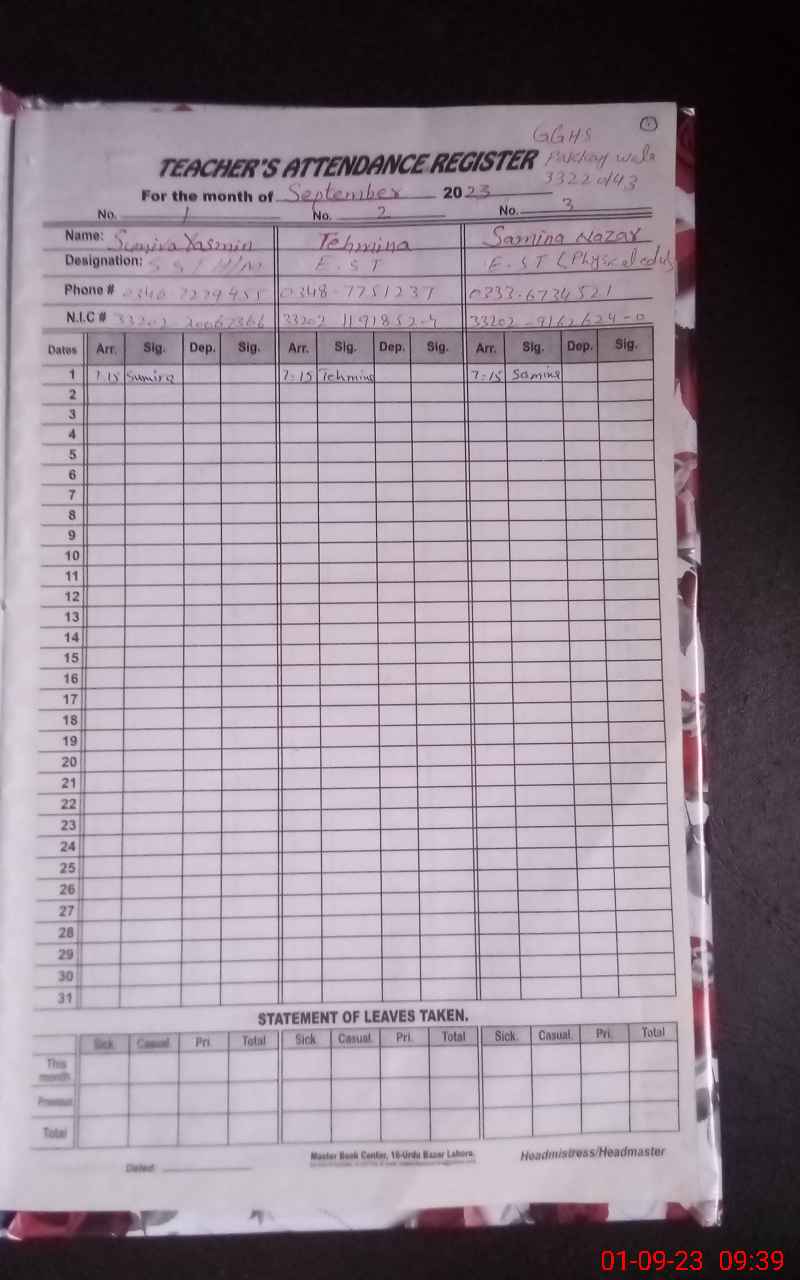 ①
GGHS
TEACHER'S ATTENDANCE REGISTER Pakkay wala
33220143
For the month of September 2023
No. 1 No. 2 No. 3
Name: Sumira Yasmin Tehmina Samina Nazar
Designation: E.ST E.ST (Physical edu)
Phone # 0348-7751237 0333-6734521
N.I.C # 33202 33202 1191852-4 33202-9162624-0
Dates Arr. Sig. Dep. Sig. Arr. Sig. Dep. Sig. Arr. Sig. Dep. Sig.
1 7:15 Sumira 7:15 Tehmina 7:15 Samina
2
3
4
5
6
7
8
9
10
11
12
13
14
15
16
17
18
19
20
21
22
23
24
25
26
27
28
29
30
31
STATEMENT OF LEAVES TAKEN.
Sick. Casual. Pri. Total Sick. Casual. Pri. Total Sick. Casual. Pri. Total
This month
Previous
Total
Dated:
Master Book Center, 16-Urdu Bazar Lahore.
Headmistress/Headmaster
01-09-23 09:39